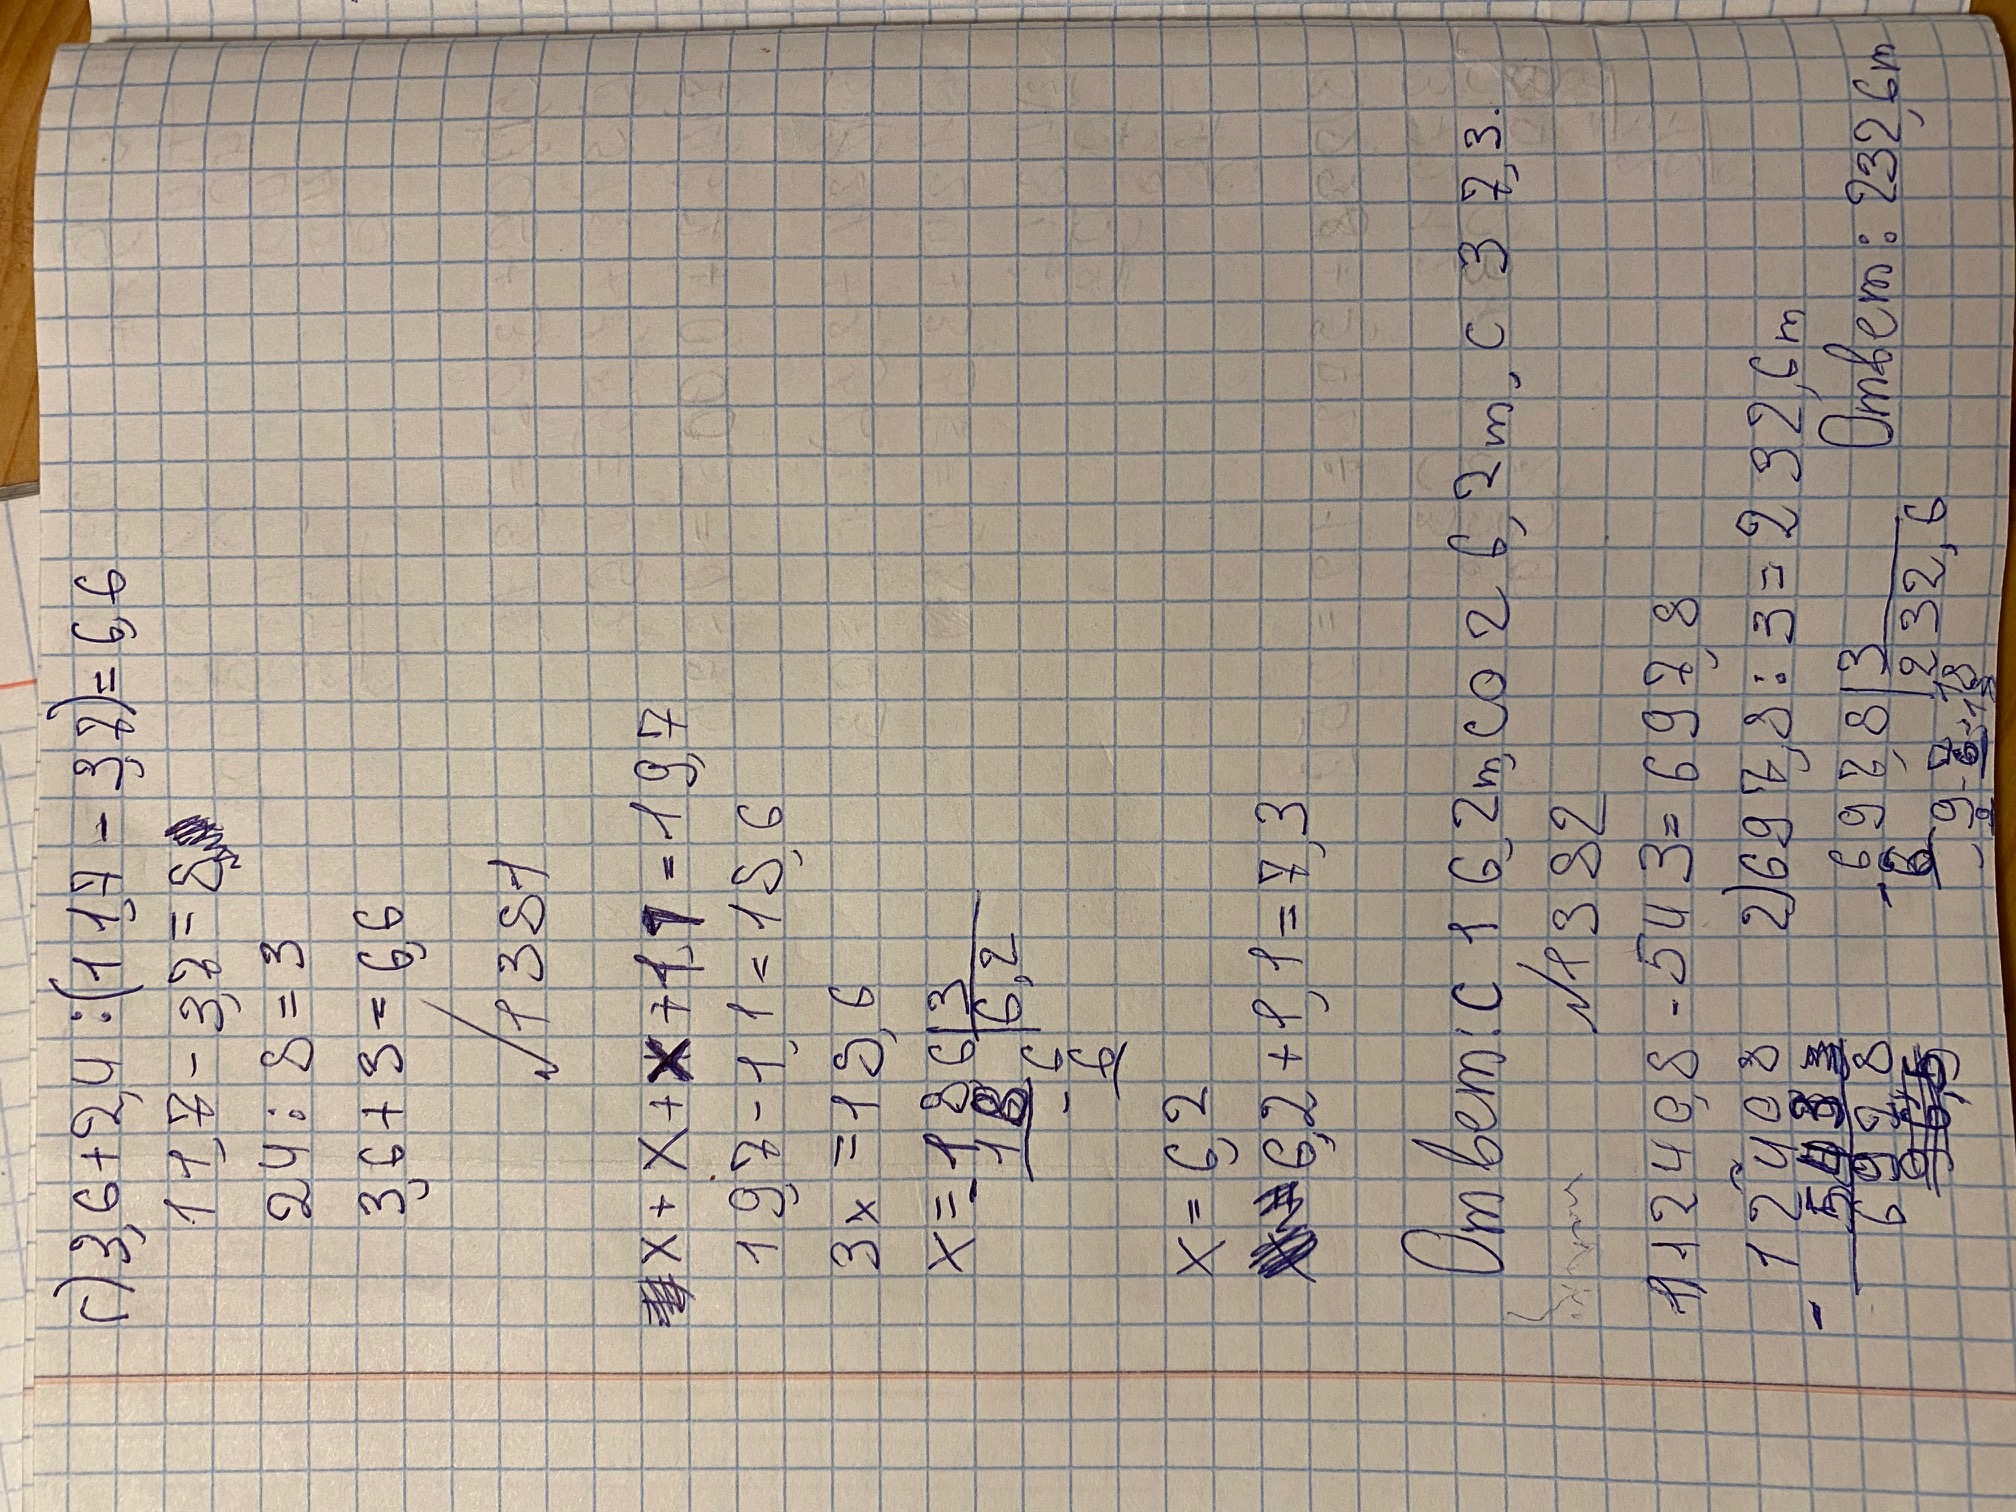 г) 3,6 + 2,4 : (11,7 - 3,7) = 6,6
11,7 - 3,7 = 8
24 : 8 = 3
3,6 + 3 = 6,6
№1381
x + x + x + 1,1 = 19,7
19,7 - 1,1 = 18,6
3x = 18,6
x = 18,6 | 3
18 | 6,2
- 6
6
x = 6,2
6,2 + 1,1 = 7,3
Ответ: С 1 6,2т, со 2 6,2т, с 3 7,3.
№1382
1) 1240,8 - 543 = 697,8
1240 8
- 543
697 8
2) 697,8 : 3 = 232,6т
697,8 | 3
- 6 | 232,6
- 9
9
- 7
6
18
18
Ответ: 232,6т